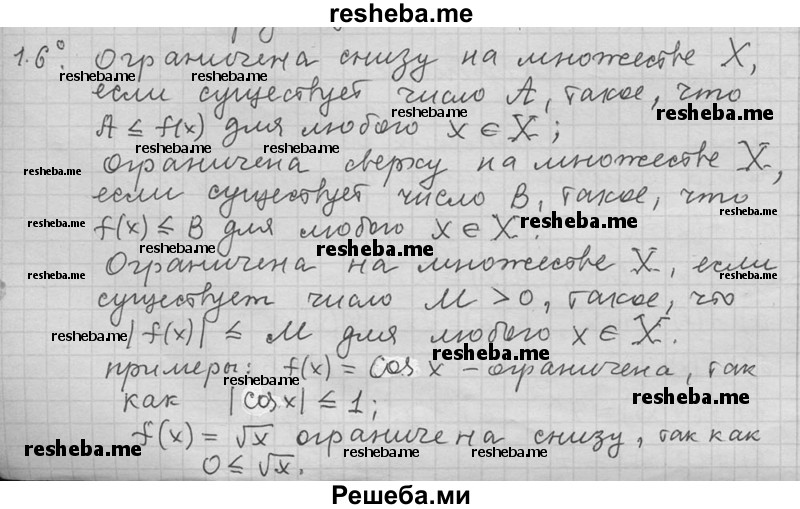 resheba.me
1.6°. Ограничена снизу на множестве X,
resheba.me resheba.me resheba.me
если существует число A, такое, что
resheba.me resheba.me
A ≤ f(x) для любого x ∈ X;
resheba.me resheba.me
ограничена сверху на множестве X,
resheba.me resheba.me
если существует число B, такое, что
resheba.me resheba.me resheba.me
f(x) ≤ B для любого x ∈ X.
resheba.me resheba.me resheba.me
Ограничена на множестве X, если
resheba.me resheba.me
существует число M > 0, такое, что
resheba.me resheba.me resheba.me
|f(x)| ≤ M для любого x ∈ X.
примеры: f(x) = cos x – ограничена, так
resheba.me resheba.me
как |cos x| ≤ 1;
f(x) = √x ограничена снизу, так как
resheba.me resheba.me resheba.me
0 ≤ √x.
Решеба.ми